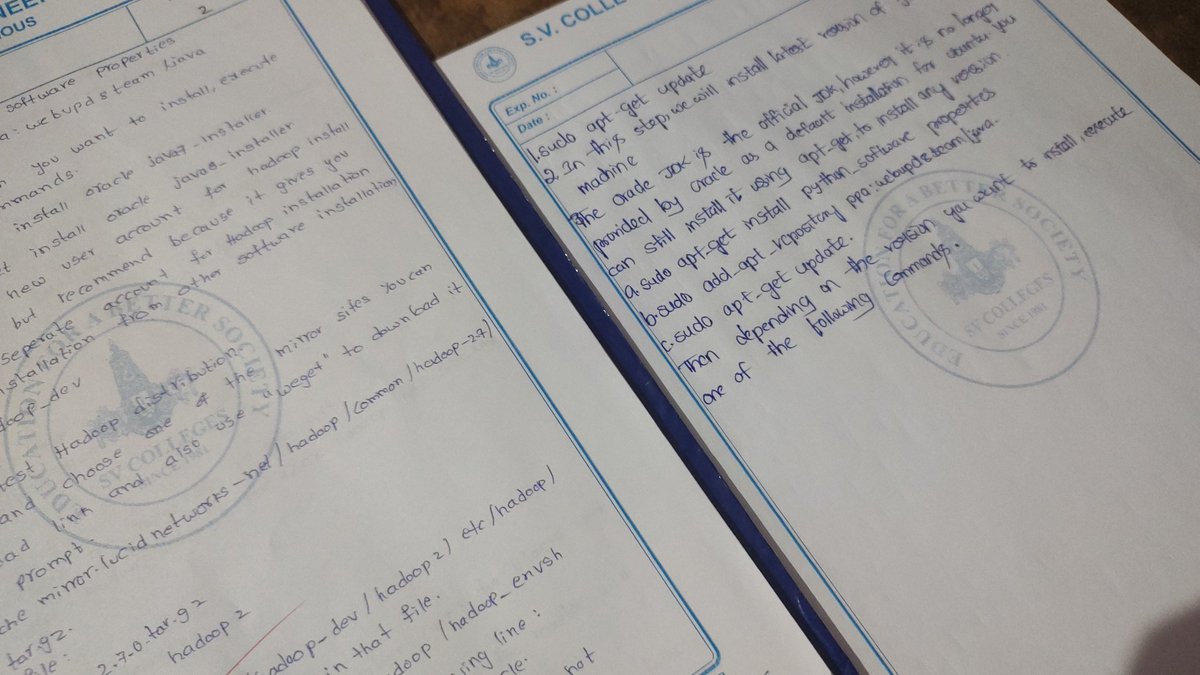 NEE
OUS
2
software Properties
a: webupd8team/java
you want to install, execute
mmands.
install oracle java7-installer
install oracle java8-installer
new user account for hadoop install
but recommend because it gives you
seperate account for Hadoop installation
installation from other software installation
doop_dev
test Hadoop distribution.
and choose one of the mirror sites you can
oad link and also use "weget" to download it
prompt.
che mirror.lucidnetworks-net/hadoop/common/hadoop-2.7)
tar.gz.
file:
2-7-0.tar.gz
hadoop 2
hadoop_dev/hadoop2) etc/hadoop/
in that file.
doop/hadoop_envsh
ing line:
cle.
not
EDUCATION FOR A BETTER SOCIETY
SV COLLEGES
SINCE 1981
S.V. COLLE
Exp. No. :
Date :
1. sudo apt-get update
2. In this step, we will install latest version of
machine
The oracle JDK is the official JDK, however it is no longer
provided by oracle as a default installation for ubuntu. you
can still install it using apt-get. to install any version
a. sudo apt-get install python_software properties
b. sudo add_apt_repository ppa:webupd8team/java.
c. sudo apt-get update.
Then depending on the version you want to install, execute
one of the following commands.
EDUCATION FOR A BETTER SOCIETY
SV COLLEGES
SINCE 1981